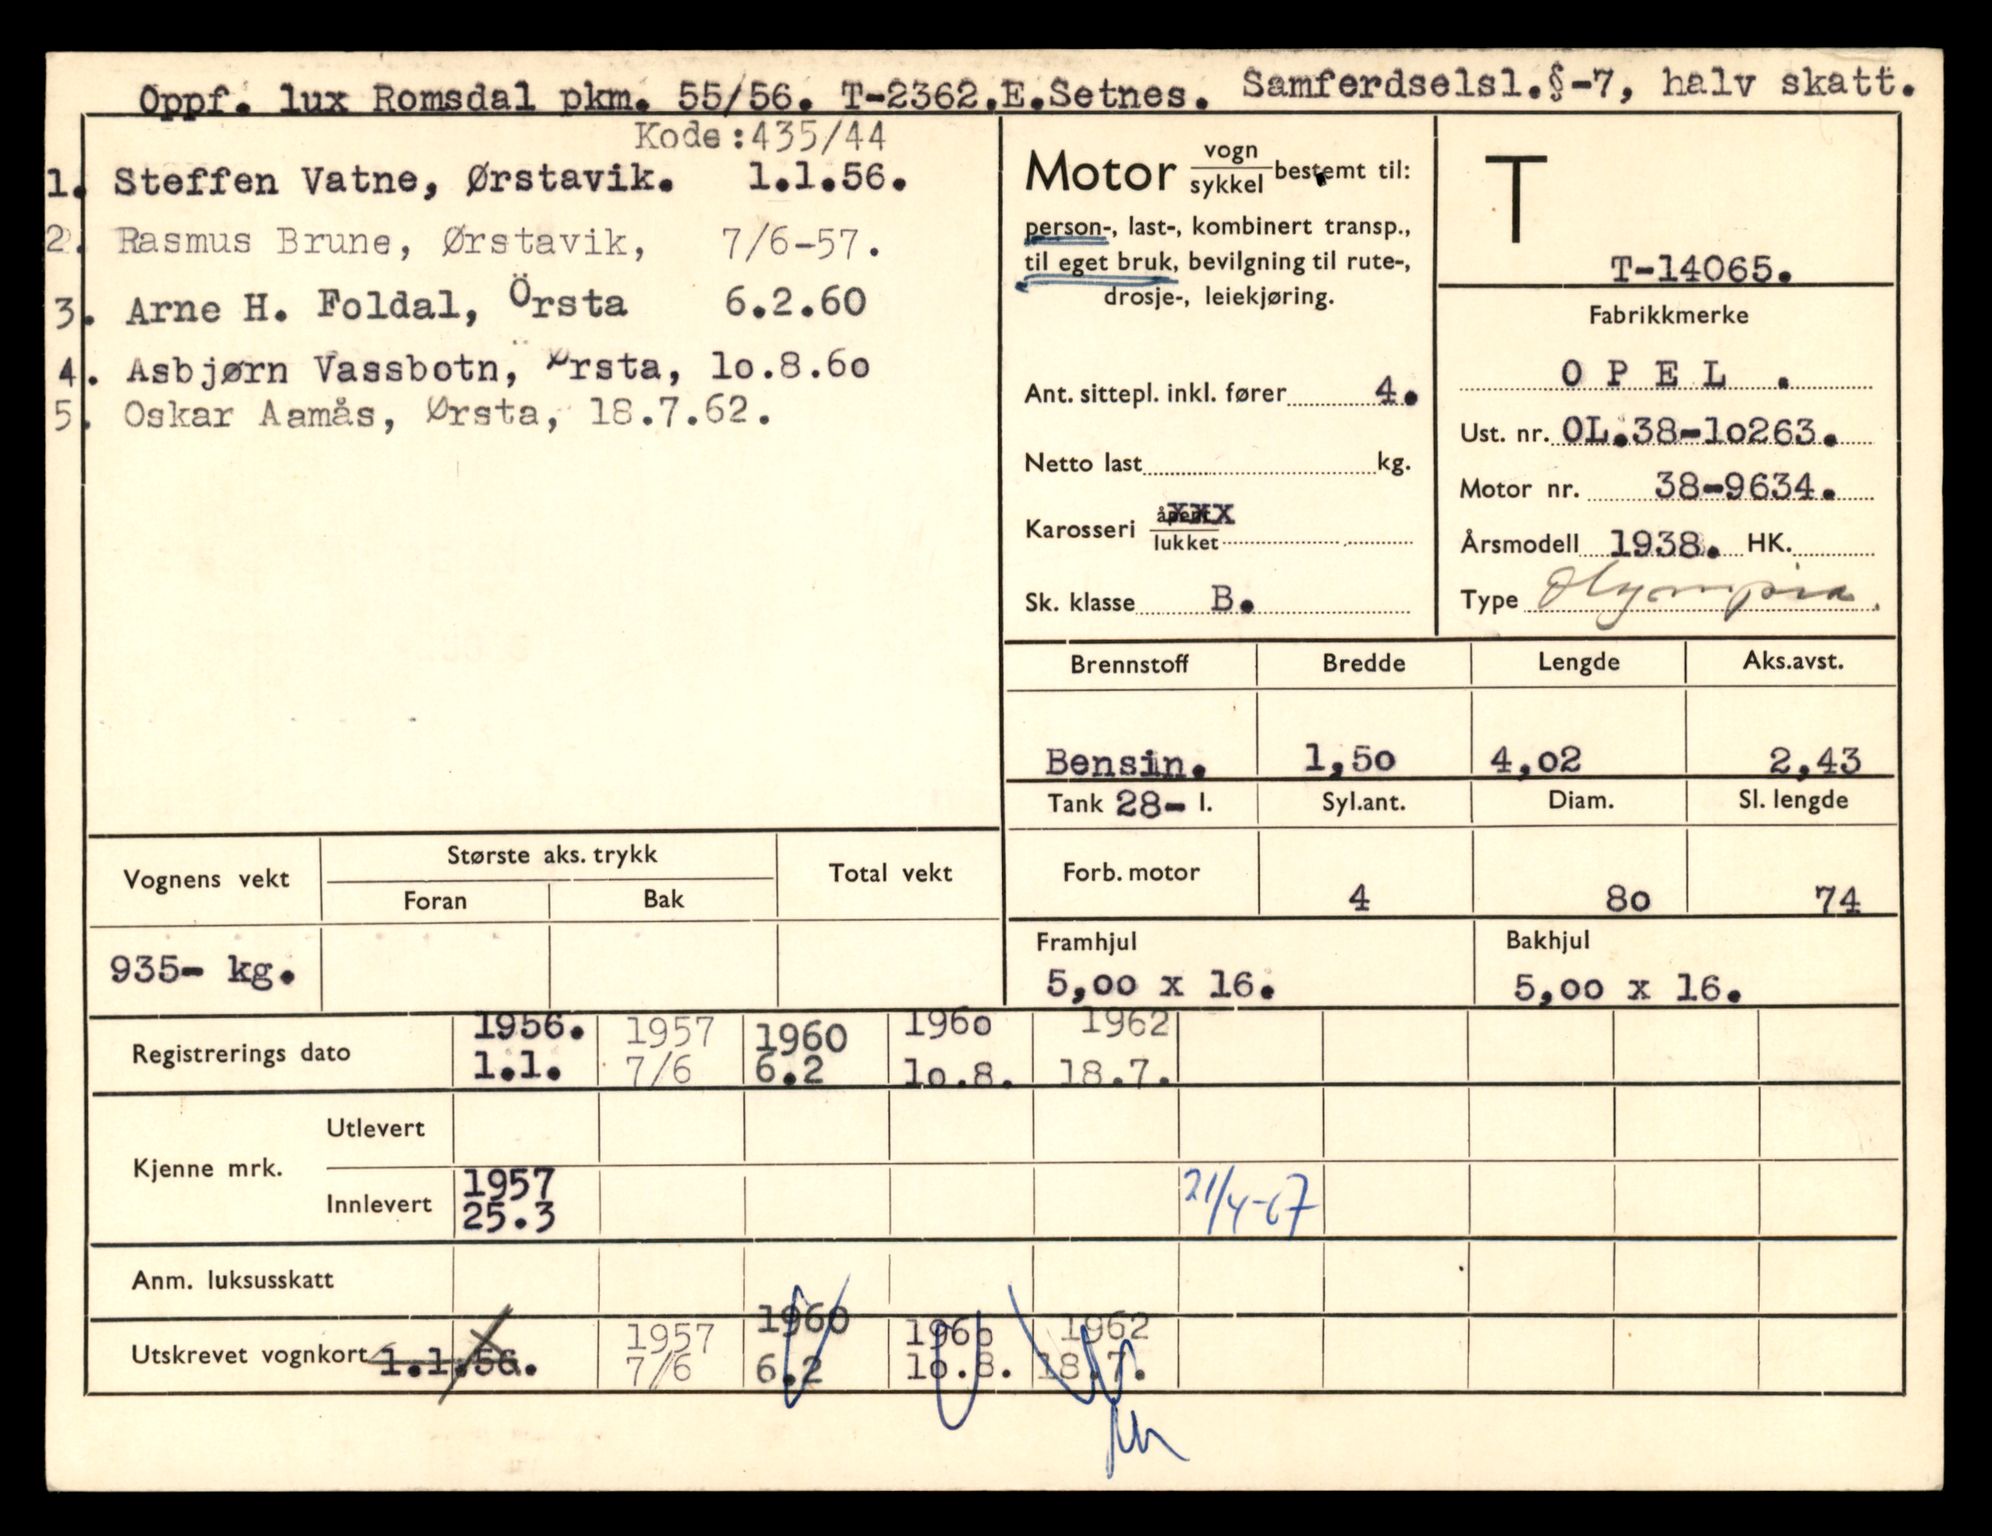 Oppf. lux Romsdal pkm. 55/56. T-2362.E.Setnes. Samferdselsl.§-7, halv skatt.
Kode:435/44
1. Steffen Vatne, Ørstavik. 1.1.56.
2. Rasmus Brune, Ørstavik, 7/6-57.
3. Arne H. Foldal, Örsta 6.2.60
4. Asbjørn Vassbotn, Ørsta, 10.8.60
5. Oskar Aamås, Ørsta, 18.7.62.
Motor vogn/sykkel bestemt til:
person-, last-, kombinert transp.,
til eget bruk, bevilgning til rute-,
drosje-, leiekjøring.
Ant. sittepl. inkl. fører 4.
Netto last kg.
Karosseri åpent xxx
lukket
Sk. klasse B.
T
T-14065.
Fabrikkmerke
OPEL .
Ust. nr. OL.38-10263.
Motor nr. 38-9634.
Årsmodell 1938. HK.
Type Olympia.
Brennstoff Bredde Lengde Aks.avst.
Bensin. 1,50 4,02 2,43
Tank 28- l. Syl.ant. Diam. Sl. lengde
Forb. motor 4 80 74
Framhjul Bakhjul
5,00 x 16. 5,00 x 16.
Vognens vekt Største aks. trykk Total vekt
Foran Bak
935- kg.
Registrerings dato 1956. 1957 1960 1960 1962
1.1. 7/6 6.2 10.8. 18.7.
Kjenne mrk. Utlevert
Innlevert 1957 21/4-67
25.3
Anm. luksusskatt
Utskrevet vognkort 1.1.56. 1957 1960 1960 1962
7/6 6.2 10.8. 18.7.